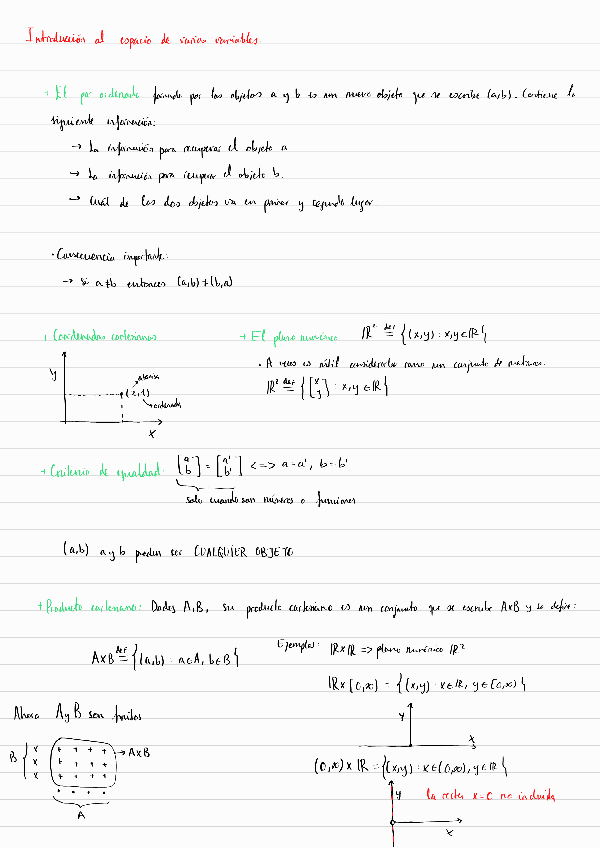 Introducción al espacio de varias variables
→ El par ordenado formado por los objetos a y b es un nuevo objeto que se escribe (a,b). Contiene la
siguiente información:
→ La información para recuperar el objeto a
→ La información para recuperar el objeto b.
→ Cuál de los dos objetos va en primer y segundo lugar
· Consecuencia importante:
→ Si a≠b entonces (a,b)≠(b,a)
Coordenadas cartesianas
y
abscisa
ordenada
x
→ El plano numérico ℝ² def= {(x,y) : x,y∈ℝ}
· A veces es útil considerarlo como un conjunto de matrices.
ℝ² def= {[x y] : x,y∈ℝ}
→ Criterio de igualdad: [a b] = [a' b'] <=> a=a', b=b'
solo cuando son números o funciones
(a,b) a y b pueden ser CUALQUIER OBJETO
→ Producto cartesiano: Dados A,B, su producto cartesiano es un conjunto que se escribe AxB y se define:
AxB def= {(a,b) : a∈A, b∈B}
Ejemplos: ℝxℝ => plano numérico ℝ²
ℝx[0,∞) = {(x,y) : x∈ℝ, y∈[0,∞)}
y
x
Ahora A y B son finitos
B { x x x
→ AxB
A
(0,∞)xℝ = {(x,y) : x∈(0,∞), y∈ℝ}
y
x
La recta x=0 no incluida